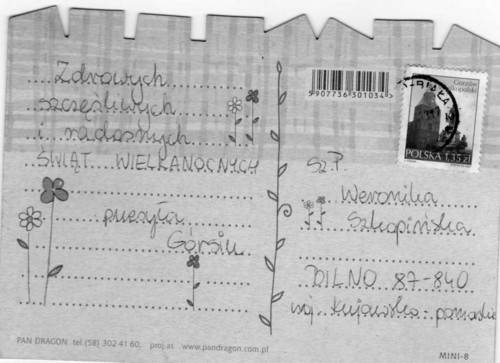 Zdrowych
szczęśliwych
i radosnych
ŚWIĄT WIELKANOCNYCH
przesyła
5907736301034
Gorzów
Wielkopolski
POLSKA 1,35 zł
Sz.P.
Weronika
87-840
woj. Kujawsko-pomorskie
PAN DRAGON tel.(58) 302 41 60, proj.as www.pandragon.com.pl
MINI-8